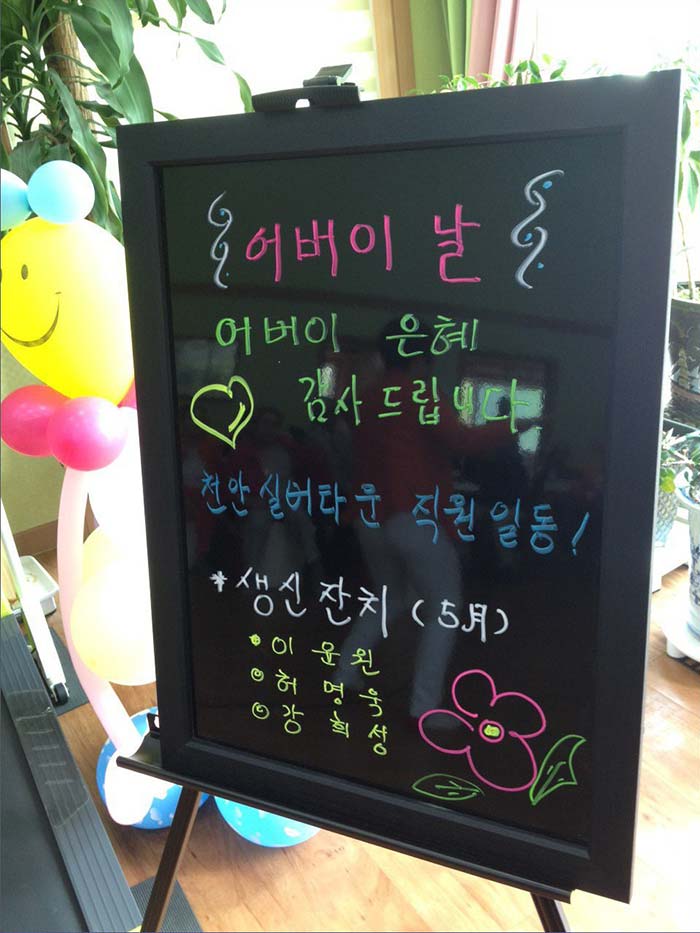 어버이 날
어버이 은혜
감사드립니다.
천안실버타운 직원일동!
*생신잔치 (5月)
이윤원
허명욱
강희성